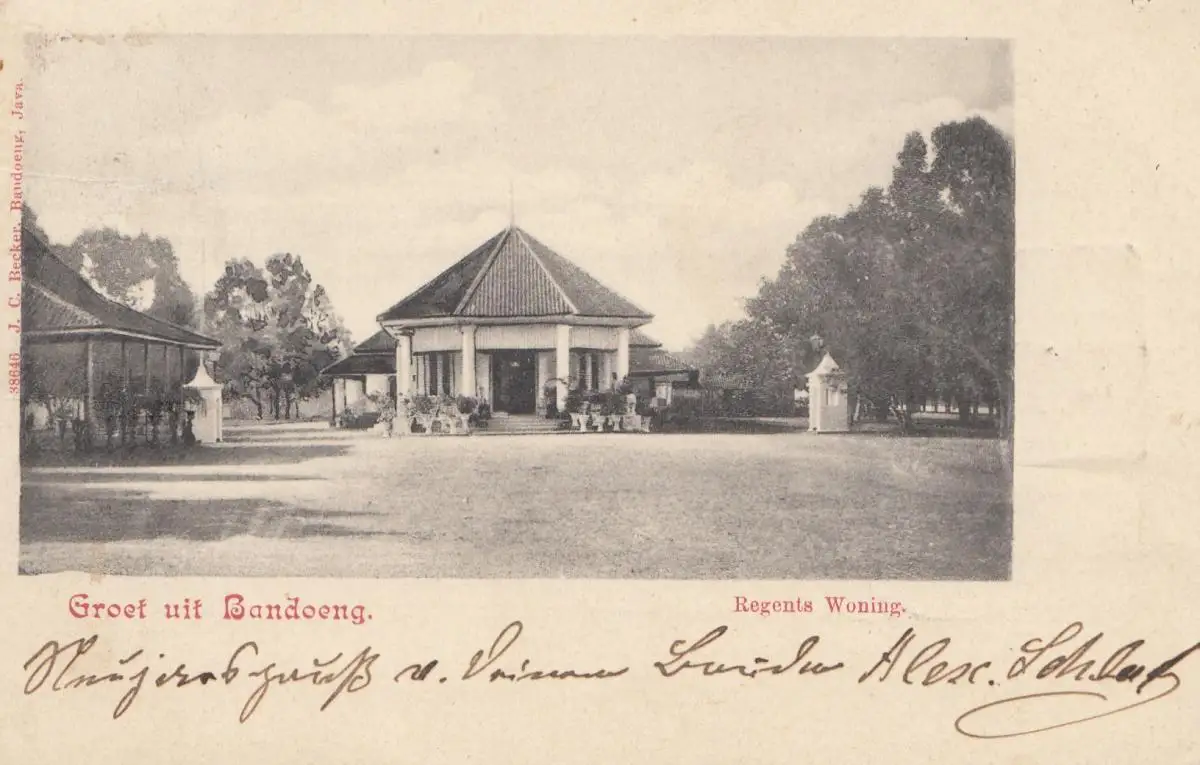 38646 J. C. Becker, Bandoeng, Java.
Groet uit Bandoeng.
Regents Woning.
Neujahrsgruß v. Deinem Alex.